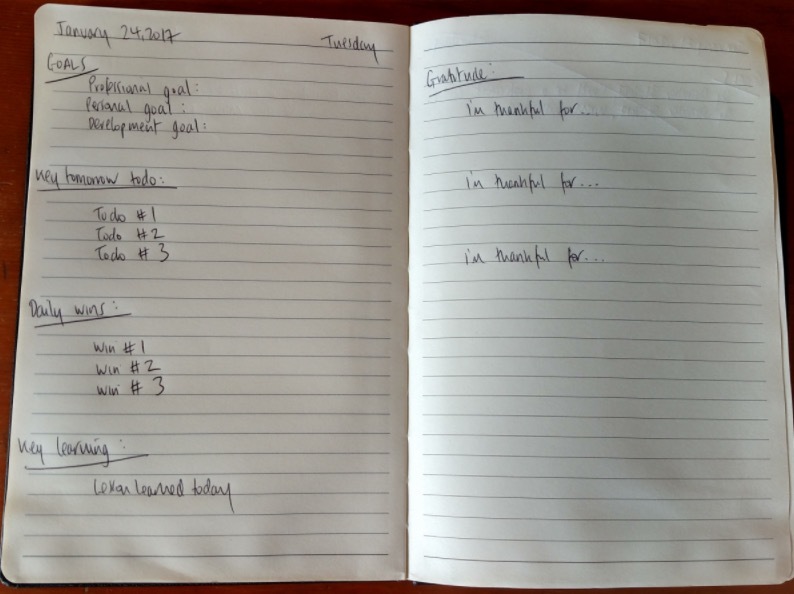 January 24, 2017
Tuesday
GOALS
Professional goal:
Personal goal:
Development goal:
Key tomorrow todo:
Todo #1
Todo #2
Todo # 3
Daily wins:
win #1
win #2
win # 3
Key learning:
Lesson learned today
Gratitude:
i'm thankful for...
i'm thankful for...
i'm thankful for...